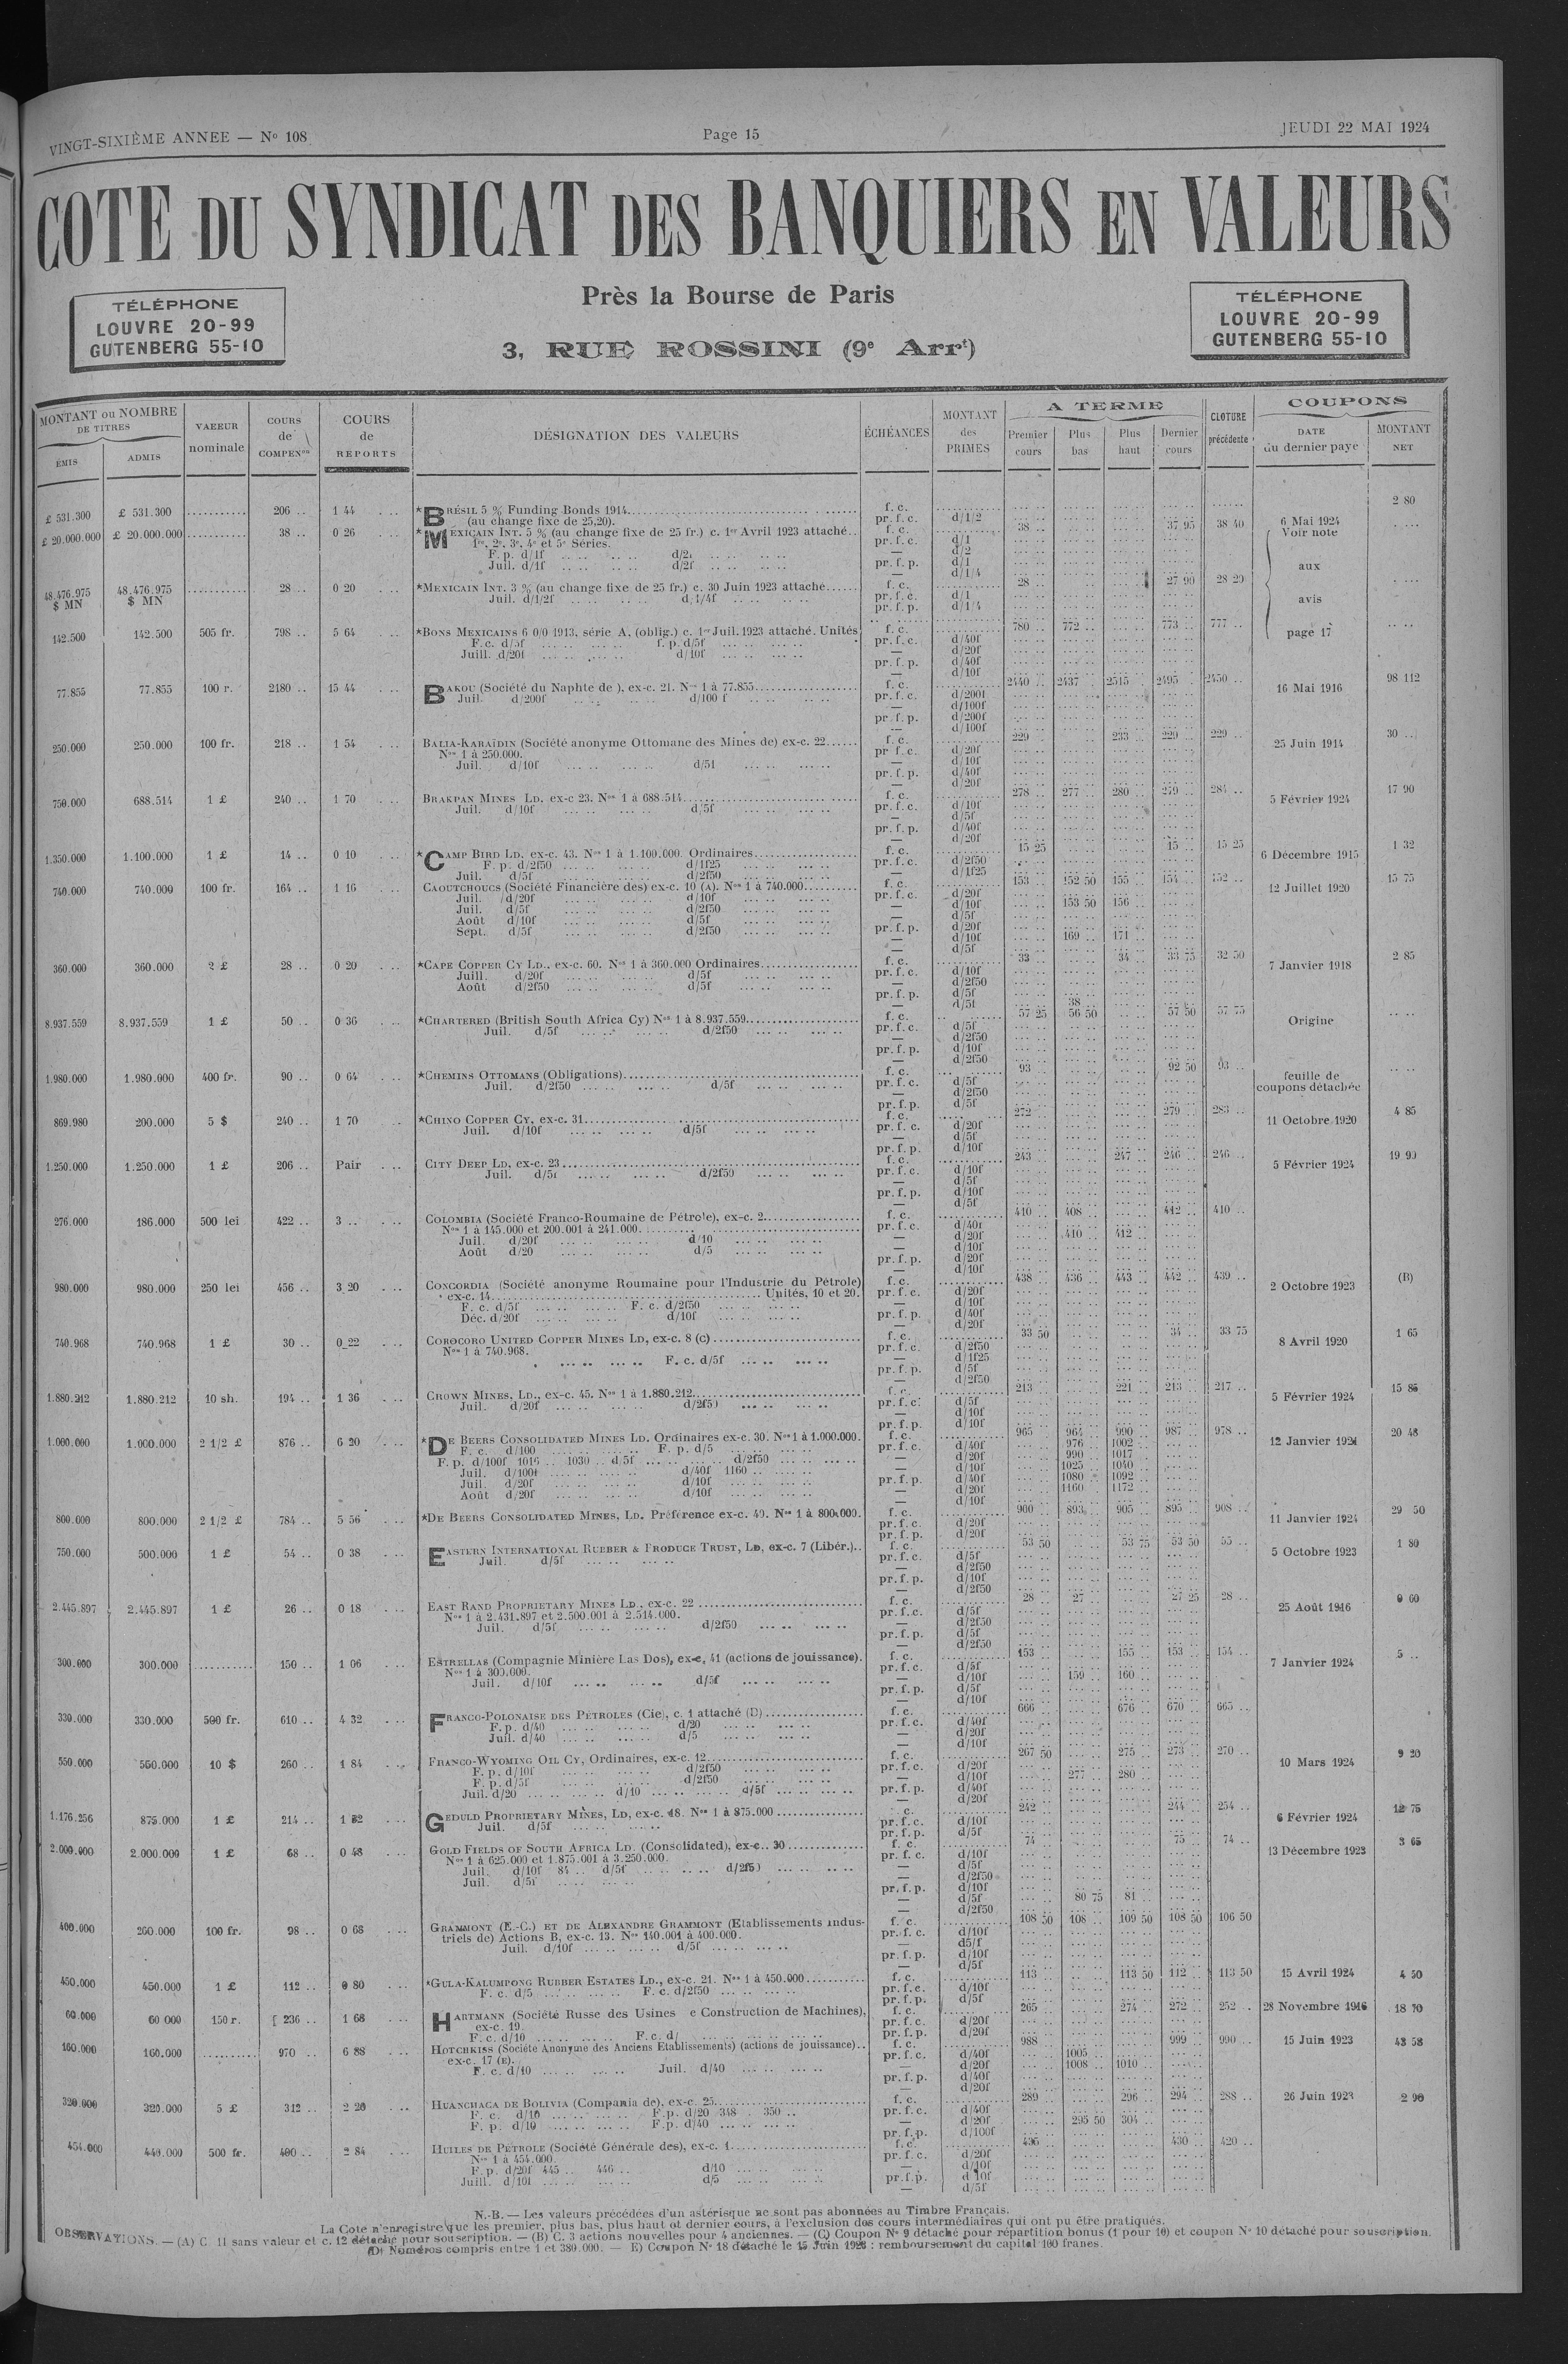 VINGT-SIXIÈME ANNEE — No 108
Page 15
JEUDI 22 MAI 1924
COTE DU SYNDICAT DES BANQUIERS EN VALEURS
TÉLÉPHONE
LOUVRE 20-99
GUTENBERG 55-10
Près la Bourse de Paris
3, RUE ROSSINI (9e Arrt)
TÉLÉPHONE
LOUVRE 20-99
GUTENBERG 55-10
MONTANT ou NOMBRE DE TITRES
ÉMIS ADMIS
VALEUR nominale
COURS de COMPENon
COURS de REPORTS
DÉSIGNATION DES VALEURS
ÉCHÉANCES
MONTANT des PRIMES
A TERME
Premier cours Plus bas Plus haut Dernier cours
CLOTURE précédente
COUPONS
DATE du dernier payé
MONTANT NET
£ 531.300 £ 531.300 206 .. 1 44 *BRÉSIL 5 % Funding Bonds 1914 f. c. 6 Mai 1924 2 80
(au change fixe de 25,20). pr. f. c. d/1/2
£ 20.000.000 £ 20.000.000 38 .. 0 26 *MEXICAIN INT. 5 % (au change fixe de 25 fr.) c. 1er Avril 1923 attaché.. f. c. 38 .. 37 95 38 40 Voir note
1re, 2e, 3e, 4e et 5e Séries. pr. f. c. d/1
F. p. d/1f d/2f — d/2
Juil. d/1f d/2f pr. f. p. d/1
— d/1/4
aux
48.476.975 $ MN 48.476.975 $ MN 28 .. 0 20 *MEXICAIN INT. 3 % (au change fixe de 25 fr.) c. 30 Juin 1923 attaché f. c. 28 .. 27 90 28 20
Juil. d/1/2f d/1/4f pr. f. c. d/1
pr. f. p. d/1/4
avis
142.500 142.500 505 fr. 798 .. 5 64 *BONS MEXICAINS 6 0/0 1913, série A, (oblig.) c. 1er Juil. 1923 attaché. Unités f. c. 780 .. 772 .. 773 .. 777 .. page 17
F.c. d/5f f. p. d/5f pr. f. c. d/40f
Juill. d/20f d/10f — d/20f
pr. f. p. d/40f
— d/10f
77.855 77.855 100 r. 2180 .. 15 44 BAKOU (Société du Naphte de ), ex-c. 21. Nos 1 à 77.855 f. c. 2440 .. 2437 .. 2515 .. 2495 .. 2450 .. 16 Mai 1916 98 112
Juil. d/200f d/100 f pr. f. c. d/200f
— d/100f
pr. f. p. d/200f
— d/100f
250.000 250.000 100 fr. 218 .. 1 54 BALIA-KARAÏDIN (Société anonyme Ottomane des Mines de) ex-c. 22 f. c. 229 .. 233 .. 229 .. 229 .. 25 Juin 1914 30 ..
Nos 1 à 250.000. pr f. c. d/20f
Juil. d/10f d/5f — d/10f
pr. f. p. d/40f
— d/20f
750.000 688.514 1 £ 240 .. 1 70 BRAKPAN MINES LD. ex-c 23. Nos 1 à 688.514 f. c. 278 .. 277 .. 280 .. 279 .. 284 .. 5 Février 1924 17 90
Juil. d/10f d/5f pr. f. c. d/10f
— d/5f
pr. f. p. d/40f
— d/20f
1.350.000 1.100.000 1 £ 14 .. 0 10 *CAMP BIRD LD. ex-c. 43. Nos 1 à 1.100.000. Ordinaires f. c. 15 25 15 .. 15 25 6 Décembre 1915 1 32
F. p. d/2f50 d/1f25 pr. f. c. d/2f50
Juil. d/5f d/2f50 — d/1f25
740.000 740.000 100 fr. 164 .. 1 16 CAOUTCHOUCS (Société Financière des) ex-c. 10 (A). Nos 1 à 740.000 f. c. 153 .. 152 50 155 .. 154 .. 152 .. 12 Juillet 1920 15 75
Juil. d/20f d/10f pr. f. c. d/20f
Juil. d/5f d/2f50 — d/10f 153 50 156 ..
Août d/10f d/5f — d/5f
Sept. d/5f d/2f50 pr. f. p. d/20f
— d/10f 169 .. 171 ..
— d/5f
360.000 360.000 2 £ 28 .. 0 20 *CAPE COPPER CY LD., ex-c. 60. Nos 1 à 360.000 Ordinaires f. c. 33 .. 34 .. 33 75 32 50 7 Janvier 1918 2 85
Juill. d/20f d/5f pr. f. c. d/10f
Août d/2f50 d/5f — d/2f50
pr. f. p. d/5f
— d/5f 38 ..
8.937.559 8.937.559 1 £ 50 .. 0 36 *CHARTERED (British South Africa Cy) Nos 1 à 8.937.559 f. c. 57 25 56 50 57 50 57 75 Origine
Juil. d/5f d/2f50 pr. f. c. d/5f
— d/2f50
pr. f. p. d/10f
— d/2f50
1.980.000 1.980.000 400 fr. 90 .. 0 64 *CHEMINS OTTOMANS (Obligations) f. c. 93 .. 92 50 93 .. feuille de coupons détachée
Juil. d/2f50 d/5f pr. f. c. d/5f
— d/2f50
pr. f. p. d/5f
869.980 200.000 5 $ 240 .. 1 70 *CHINO COPPER CY, ex-c. 31 f. c. 272 .. 279 .. 283 .. 11 Octobre 1920 4 85
Juil. d/10f d/5f pr. f. c. d/20f
— d/5f
pr. f. p. d/10f
1.250.000 1.250.000 1 £ 206 .. Pair CITY DEEP LD, ex-c. 23 f. c. 243 .. 247 .. 246 .. 246 .. 5 Février 1924 19 90
Juil. d/5f d/2f50 pr. f. c. d/10f
— d/5f
pr. f. p. d/10f
— d/5f
276.000 186.000 500 lei 422 .. 3 .. COLOMBIA (Société Franco-Roumaine de Pétrole), ex-c. 2 f. c. 410 .. 408 .. 412 .. 410 ..
Nos 1 à 145.000 et 200.001 à 241.000 pr. f. c. d/40f
Juil. d/20f d/10 — d/20f 410 .. 412 ..
Août d/20 d/5 — d/10f
pr. f. p. d/20f
— d/10f
980.000 980.000 250 lei 456 .. 3 20 CONCORDIA (Société anonyme Roumaine pour l'Industrie du Pétrole) f. c. 438 .. 436 .. 443 .. 442 .. 439 .. 2 Octobre 1923 (B)
ex-c. 14 Unités, 10 et 20. pr. f. c. d/20f
F. c. d/5f F. c. d/2f50 — d/10f
Déc. d/20f d/10f pr. f. p. d/40f
— d/20f
740.968 740.968 1 £ 30 .. 0 22 COROCORO UNITED COPPER MINES LD, ex-c. 8 (C) f. c. 33 50 34 .. 33 75 8 Avril 1920 1 65
Nos 1 à 740.968. pr. f. c. d/2f50
F. c. d/5f — d/1f25
pr. f. p. d/5f
— d/2f50
1.880.212 1.880.212 10 sh. 194 .. 1 36 CROWN MINES, LD., ex-c. 45. Nos 1 à 1.880.212 f. c. 213 .. 221 .. 213 .. 217 .. 5 Février 1924 15 85
Juil. d/20f d/2f50 pr. f. c. d/5f
— d/10f
pr. f. p. d/10f
1.000.000 1.000.000 2 1/2 £ 876 .. 6 20 *DE BEERS CONSOLIDATED MINES LD. Ordinaires ex-c. 30. Nos 1 à 1.000.000. f. c. 965 964 .. 990 .. 987 .. 978 .. 12 Janvier 1921 20 48
F. c. d/100 F. p. d/5 pr. f. c. d/40f 976 .. 1002 ..
F. p. d/100f 1016 .. 1030 .. d/5f d/2f50 — d/20f 990 .. 1017 ..
Juil. d/100f d/40f 1160 .. — d/10f 1025 .. 1040 ..
Juil. d/20f d/10f pr. f. p. d/40f 1080 .. 1092 ..
Août d/20f d/10f — d/20f 1160 .. 1172 ..
— d/10f
800.000 800.000 2 1/2 £ 784 .. 5 56 *DE BEERS CONSOLIDATED MINES, LD. Préférence ex-c. 40. Nos 1 à 800.000. f. c. 900 .. 893 .. 905 .. 895 .. 908 .. 11 Janvier 1924 29 50
pr. f. c. d/20f
pr. f. p. d/20f
750.000 500.000 1 £ 54 .. 0 38 EASTERN INTERNATIONAL RUBBER & PRODUCE TRUST, LD, ex-c. 7 (Libér.).. f. c. 53 50 53 75 53 50 55 .. 5 Octobre 1923 1 80
Juil. d/5f pr. f. c. d/5f
— d/2f50
pr. f. p. d/10f
— d/2f50
2.445.897 2.445.897 1 £ 26 .. 0 18 EAST RAND PROPRIETARY MINES LD., ex-c. 22 f. c. 28 .. 27 .. 27 25 28 .. 25 Août 1916 0 60
Nos 1 à 2.431.897 et 2.500.001 à 2.514.000. pr. f. c. d/5f
Juil. d/5f d/2f50 — d/2f50
pr. f. p. d/5f
— d/2f50
300.000 300.000 150 .. 1 06 ESTRELLAS (Compagnie Minière Las Dos), ex-c. 41 (actions de jouissance). f. c. 153 .. 155 .. 153 .. 154 .. 7 Janvier 1924 5 ..
Nos 1 à 300.000. pr. f. c. d/5f
Juil. d/10f d/5f — d/10f 159 .. 160 ..
pr. f. p. d/5f
— d/10f
330.000 330.000 500 fr. 610 .. 4 32 FRANCO-POLONAISE DES PÉTROLES (Cie), c. 1 attaché (D) f. c. 666 .. 676 .. 670 .. 665 ..
F. p. d/40 d/20 pr. f. c. d/40f
Juil. d/40 d/5 — d/20f
— d/10f
550.000 550.000 10 $ 260 .. 1 84 FRANCO-WYOMING OIL CY, Ordinaires, ex-c. 12 f. c. 267 50 275 .. 273 .. 270 .. 10 Mars 1924 9 20
F. p. d/10f d/2f50 pr. f. c. d/20f
F. p. d/5f d/2f50 — d/10f 277 .. 280 ..
Juil. d/20 d/10 d/5f pr. f. p. d/40f
— d/20f
1.176.256 875.000 1 £ 214 .. 1 52 GEDULD PROPRIETARY MINES, LD, ex-c. 18. Nos 1 à 875.000 c. 242 .. 244 .. 254 .. 6 Février 1924 12 75
Juil. d/5f pr. f. c. d/10f
pr. f. p. d/5f
2.000.000 2.000.000 1 £ 68 .. 0 48 GOLD FIELDS OF SOUTH AFRICA LD. (Consolidated), ex-c. 30 f. c. 74 .. 75 .. 74 .. 13 Décembre 1923 3 65
Nos 1 à 625.000 et 1.875.001 à 3.250.000. pr. f. c. d/10f
Juil. d/10f 84 .. d/5f d/2f50 — d/5f
Juil. d/5f — d/2f50
pr. f. p. d/10f
— d/5f 80 75 81 ..
— d/2f50
400.000 260.000 100 fr. 98 .. 0 68 GRAMMONT (E.-C.) ET DE ALEXANDRE GRAMMONT (Etablissements indus- f. c. 108 50 108 .. 109 50 108 50 106 50
triels de) Actions B, ex-c. 13. Nos 140.001 à 400.000. pr. f. c. d/10f
Juil. d/10f d/5f — d5/f
pr. f. p. d/10f
— d/5f
450.000 450.000 1 £ 112 .. 0 80 *GULA-KALUMPONG RUBBER ESTATES LD., ex-c. 21. Nos 1 à 450.000 f. c. 113 .. 113 50 112 .. 113 50 15 Avril 1924 4 50
F. c. d/5 F. c. d/2f50 pr. f. c. d/10f
pr. f. p. d/5f
60.000 60 000 150 r. 236 .. 1 68 HARTMANN (Société Russe des Usines e Construction de Machines), f. c. 265 .. 274 .. 272 .. 252 .. 28 Novembre 1916 18 70
ex-c. 19. pr. f. c. d/20f
F. c. d/10 F. c. d/ pr. f. p. d/20f
160.000 160.000 970 .. 6 88 HOTCHKISS (Société Anonyme des Anciens Etablissements) (actions de jouissance).. f. c. 988 .. 999 .. 990 .. 15 Juin 1923 43 58
ex-c. 17 (E). pr. f. c. d/40f 1005 ..
F. c. d/10 Juil. d/40 — d/20f 1008 .. 1010 ..
pr. f. p. d/40f
— d/20f
320.000 320.000 5 £ 312 .. 2 20 HUANCHACA DE BOLIVIA (Compania de), ex-c. 25 f. c. 289 .. 296 .. 294 .. 288 .. 26 Juin 1923 2 90
F. c. d/10 F.p. d/20 348 . 350 .. pr. f. c. d/40f
F. p. d/10 F.p. d/40 — d/20f 295 50 304 ..
pr. f. p. d/100f
454.000 440.000 500 fr. 400 .. 2 84 HUILES DE PÉTROLE (Société Générale des), ex-c. 1 f. c. 436 .. 430 .. 420 ..
Nos 1 à 454.000. pr. f. c. d/20f
F. p. d/20f 445 .. 446 .. d/10 — d/10f
Juill. d/10f d/5 pr. f. p. d 10f
— d/5f
N.-B. — Les valeurs précédées d'un astérisque ne sont pas abonnées au Timbre Français.
La Cote n'enregistre que les premier, plus bas, plus haut et dernier cours, à l'exclusion des cours intermédiaires qui ont pu être pratiqués.
OBSERVATIONS. — (A) C. 11 sans valeur et c. 12 détaché pour souscription. — (B) C. 3 actions nouvelles pour 4 anciennes. — (C) Coupon No 9 détaché pour répartition bonus (1 pour 10) et coupon No 10 détaché pour souscription.
(D) Numéros compris entre 1 et 380.000. — E) Coupon No 18 détaché le 15 Juin 1923 : remboursement du capital 100 francs.